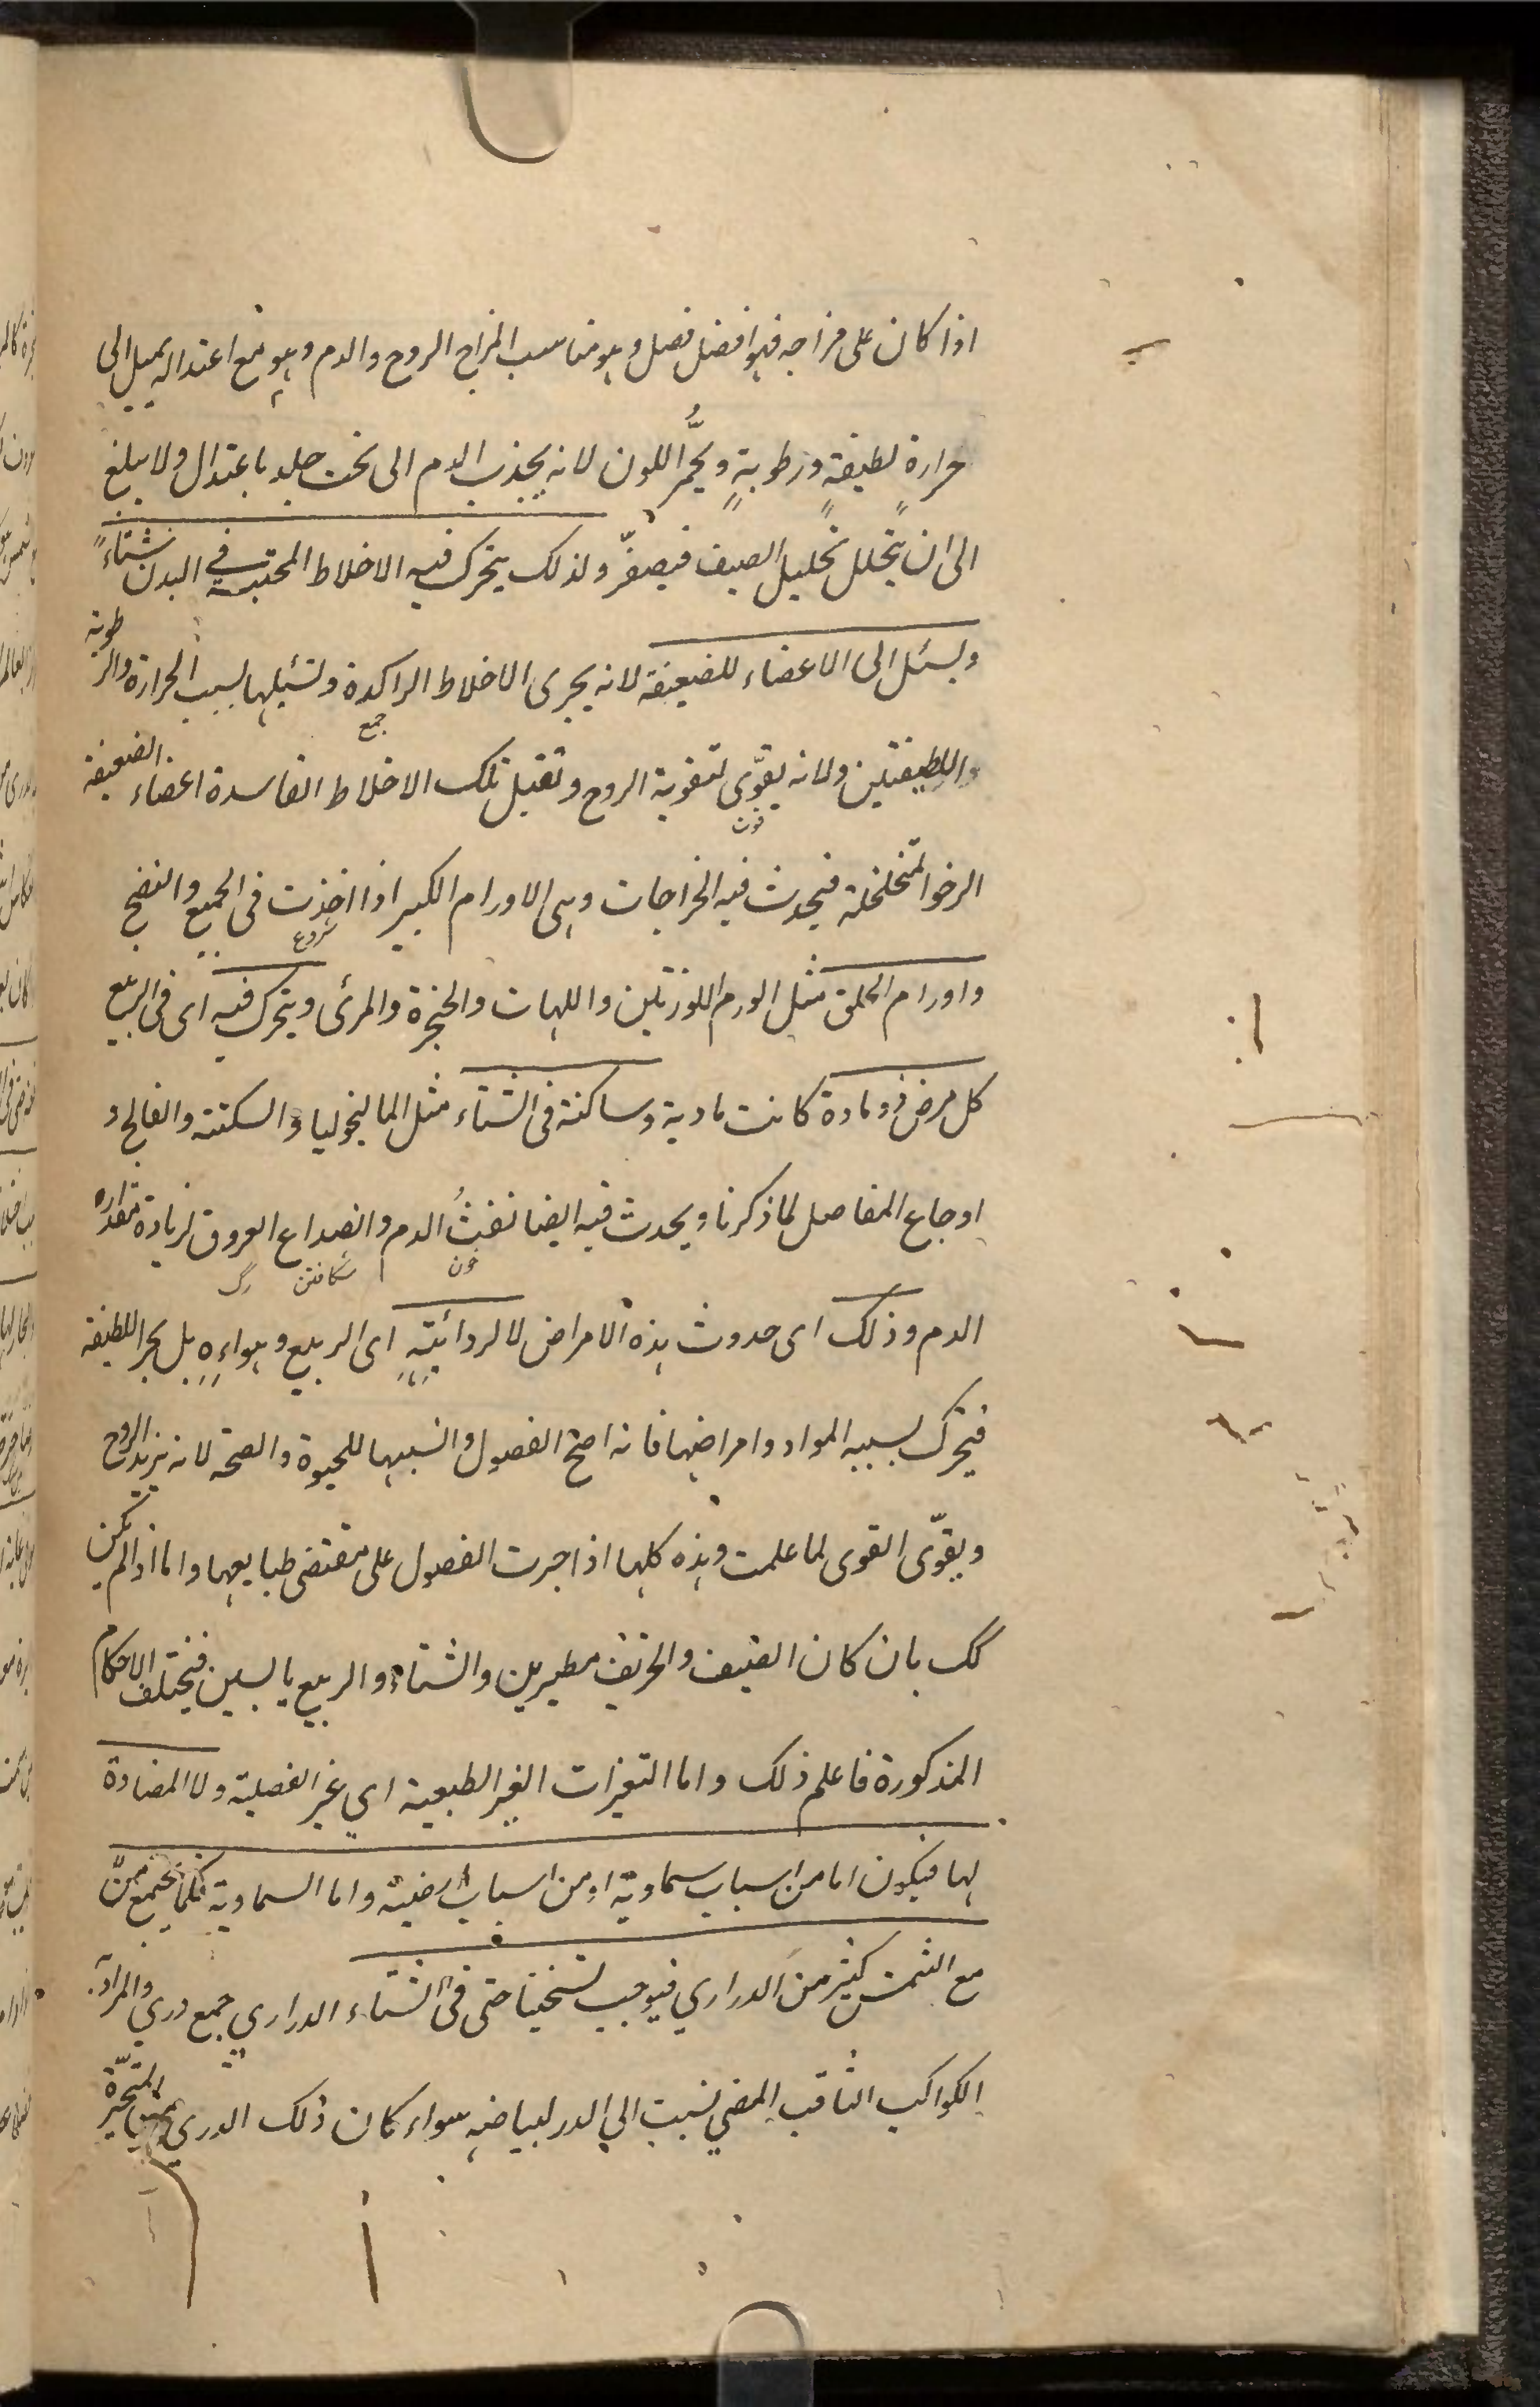 اذا كان على مزاجه فهو افضل فصل وهو مناسب لمزاج الروح والدم وهو مع اعتداله يميل الى
حرارة لطيفة ورطوبةٍ ويحمُّر اللون لانه يجذب الدم الى تحت جلد باعتدال ولا يبلغ
الى ان يتحلل تحليل الصيف فيصفرّ ولذلك يتحرك فيه الاخلاط المحتبسة في البدن شتاءً
ويسئل الى الاعضاء للضعيفة لانه يجرى الاخلاط الراكدة وتسئيلها لسبب الحرارة والرطوبة
جمع
واللطيفتين ولانه يقوّى لتقوية الروح وتقبل تلك الاخلاط الفاسدة اعضاء الضعيفة
الرخو المتخلخلة فيحدث فيه الخراجات وهى الاورام الكبير اذا اخذت فى الجمع والنضج
شروع
واورام الحلق مثل الورم اللوزتين واللهات والحنجرة والمرئ ويتحرك فيه اى فى الربيع
كل مرض ذو مادة كانت مادية وساكنة فى الشتاء مثل الماليخوليا والسكتة والفالج و
اوجاع المفاصل لما ذكرنا ويحدث فيه ايضا نفثُ الدم وانصداع العروق لزيادة مقداره
خون شكافتن رگ
الدم وذلك اى حدوث هذه الامراض لا لردائيتهٍ اى الربيع وهواءهٍ بل بحر اللطيفة
فيتحرك بسببه المواد وامراضها فانه اصح الفصول وانسبها للحيوة والصحة لانه يزيد الروح
ويقوّى القوى لما علمت وهذه كلها اذا جرت الفصول على مقتضى طبايعها واما اذا لم يكن
كك بان كان الصيف والخريف مطيرين والشتاء والربيع يابسين فيختلف الاحكام
المذكورة فاعلم ذلك واما التغيرات الغير الطبعية اي غير الفصلية ولا المضادة
لها فيكون اما من اسباب سماوية او من اسباب ارضية واما السماوية فكما يجتمع
مع الشمس كثير من الدراري فيوجب تسخينا حتى فى الشتاء الدراري جمع دري والمراد
الكواكب الثاقب المضي نسبت الي الدر لبياضه سواء كان ذلك الدري المتحيّرة